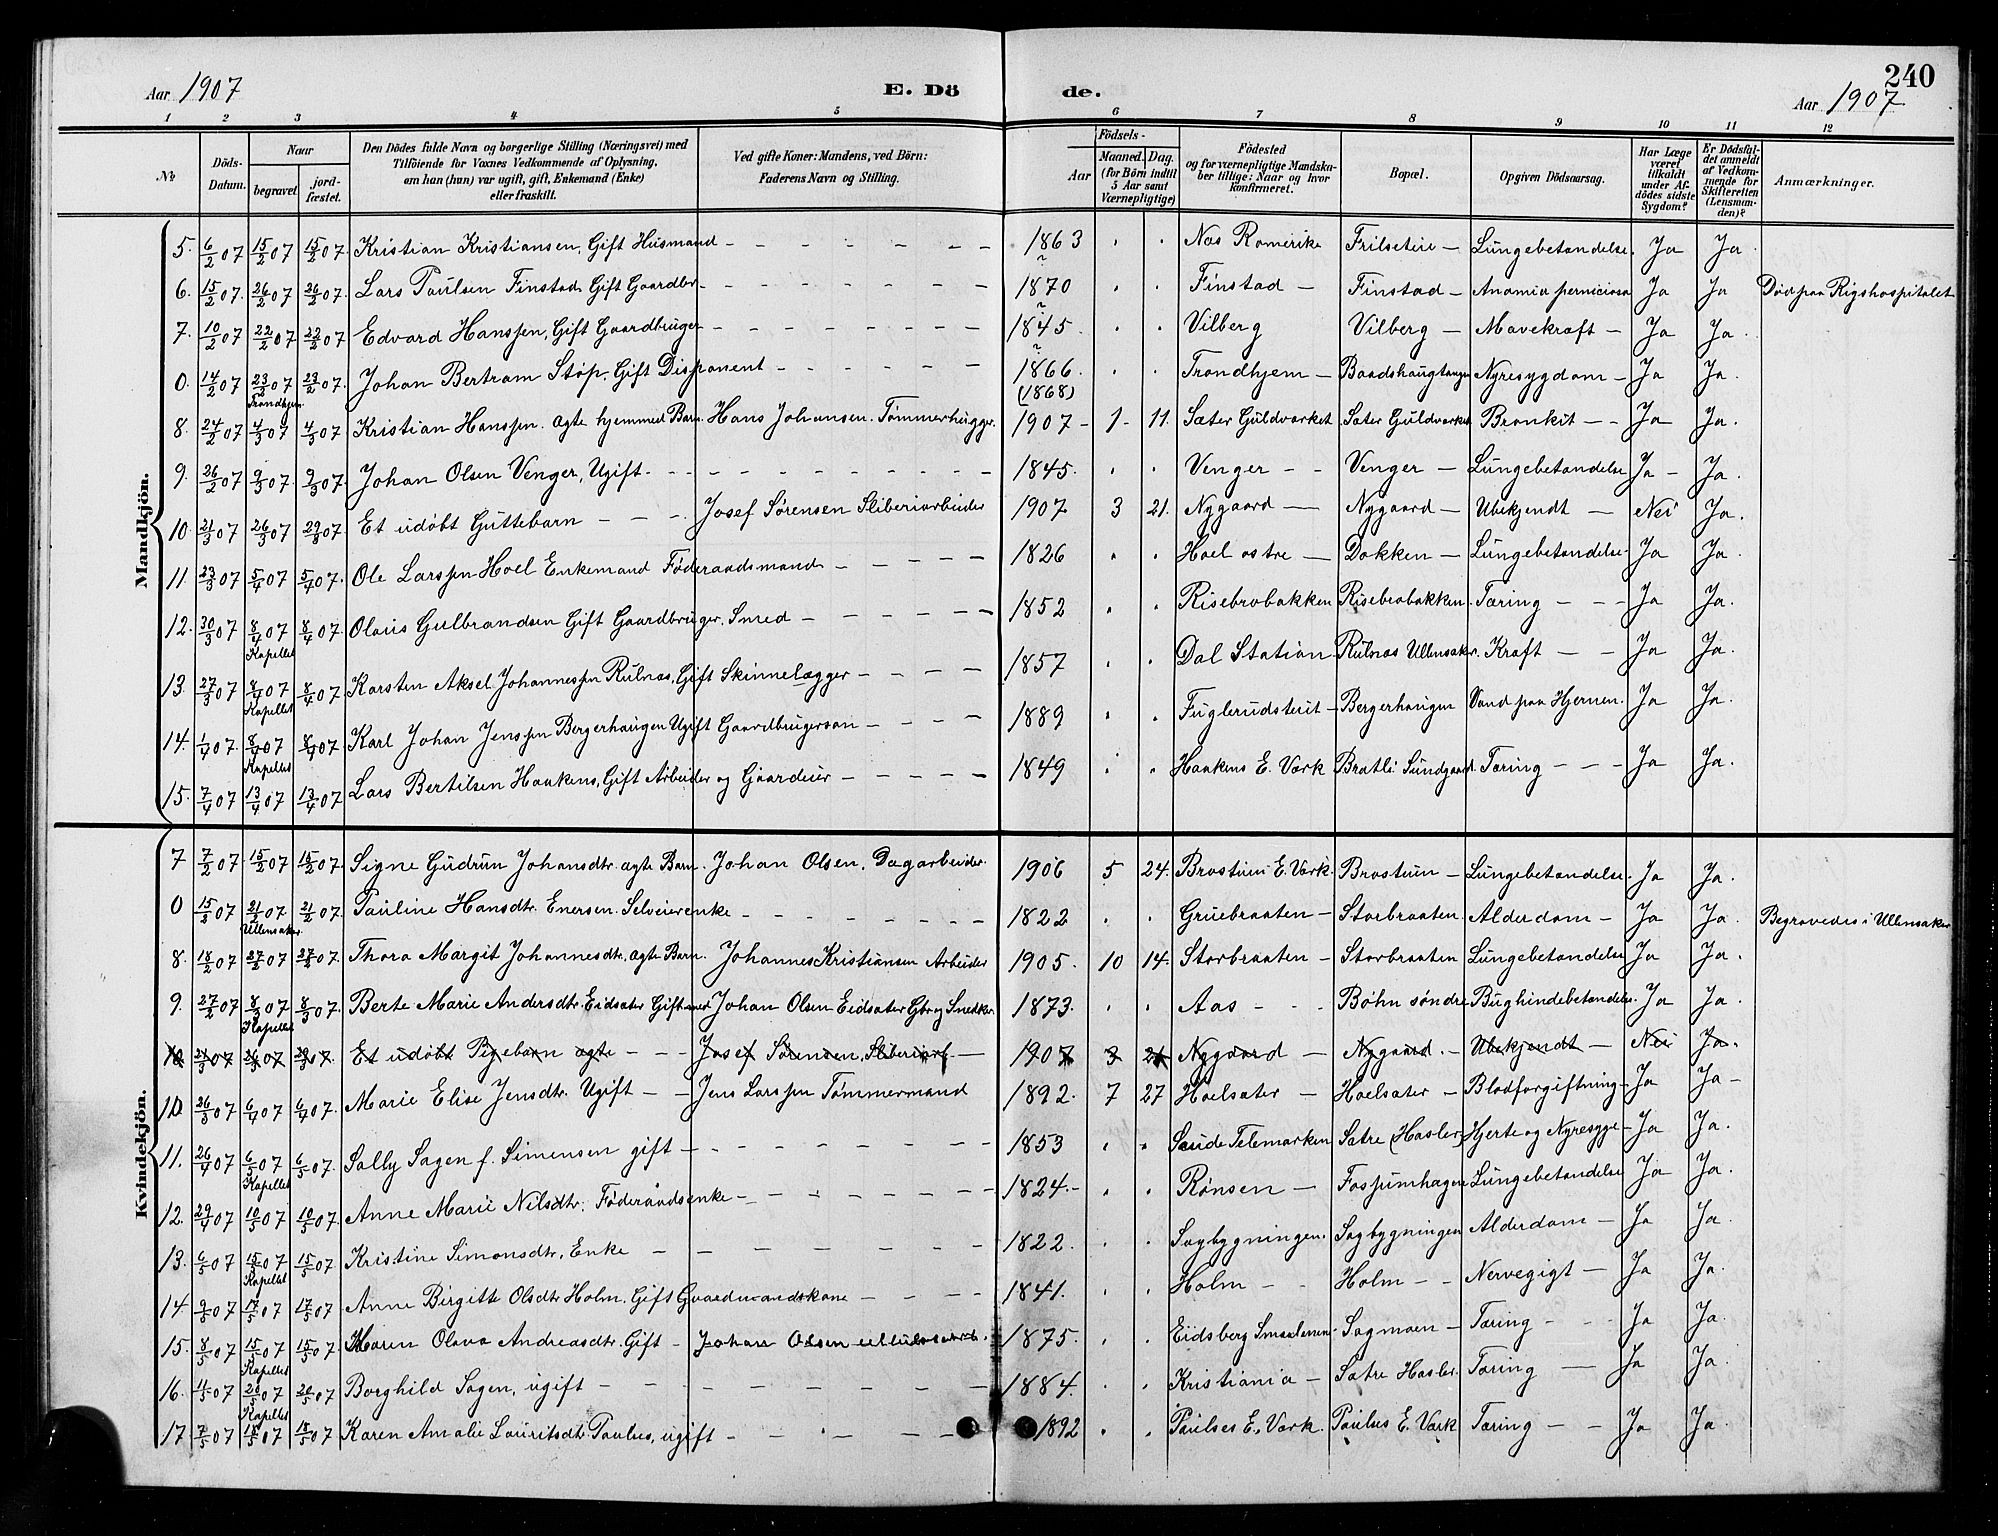 240
Aar 1907 E. Dö de. Aar 1907
1 2 3 4 5 6 7 8 9 10 11 12
№ Döds-Datum. Naar begravet. jord-fæstet. Den Dödes fulde Navn og borgerlige Stilling (Næringsvei) med Tilföiende for Voxnes Vedkommende af Oplysning, om han (hun) var ugift, gift, Enkemand (Enke) eller fraskilt. Ved gifte Koner: Mandens, ved Börn: Faderens Navn og Stilling. Födsels- Aar Maaned. Dag. (for Börn indtil 5 Aar samt Værnepligtige) Födested og for værnepligtige Mandskaber tillige: Naar og hvor konfirmeret. Bopæl. Opgiven Dödsaarsag. Har Læge været tilkaldt under Afdödes sidste Sygdom? Er Dödsfaldet anmeldt af Vedkommende for Skifteretten (Lensmanden)? Anmærkninger.
Mandkjön.
5. 6/2 07 15/2 07 15/2 07. Kristian Kristiansen, Gift Husmand 1863 Nes Romerike Frilseteie Lungebetændelse. Ja Ja
6. 15/2 07. 26/2 07 26/2 07. Lars Paulsen Finstad, Gift Gaardbr 1870 Finstad Finstad Anæmia perniciosa Ja Ja Död paa Rigshospitalet
7. 10/2 07 22/2 07 22/2 07 Edvard Hanssen, Gift Gaardbruger 1845. Vilberg Vilberg Mavekræft Ja Ja.
0. 14/2 07 23/2 07 Trondhjem 23/2 07. Johan Bertram Støp, Gift Disponent 1866. (1868) Trondhjem Baadshaugtangen Nyresygdom Ja Ja.
8. 24/2 07 4/3 07 4/3 07. Kristian Hanssen. ægte hjemmed Barn Hans Johansen. Tømmerhugger. 1907 1 11. Sæter Guldværket Sæter Guldværket Bronkit Ja Ja.
9. 26/2 07 9/3 07 9/3 07. Johan Olsen Venger, Ugift. 1845. Venger Venger Lungebetændelse Ja Ja.
10. 21/3 07 26/3 07 29/3 07. Et udøbt Guttebarn Josef Sørensen Sliberiarbeider 1907 3 21. Nygaard Nygaard Ubekjendt Nei Ja.
11. 23/3 07 5/4 07 5/4 07. Ole Larssen Hoel Enkemand Føderaadsmand 1826 Hoel østre Dokken Lungebetændelse. Ja Ja.
12. 30/3 07 8/4 07 Kapellet 8/4 07. Olaus Gulbrandsen Gift Gaardbruger, Smed 1852 Risebrobakken Risebrobakken. Tæring Ja Ja.
13. 27/3 07 8/4 07 Kapellet 8/4 07. Karsten Aksel Johannessen Rulnæs, Gift Skinnelægger 1857 Dal Station. Rulnæs Ullensaker. Kræft Ja Ja.
14. 1/4 07. 8/4 07 Kapellet 8/4 07 Karl Johan Jenssen Bergerhaugen Ugift Gaardbrugersøn 1889 Fuglerudsteiet Bergerhaugen Vand paa Hjernen. Ja Ja.
15. 7/4 07 13/4 07 13/4 07 Lars Bertilsen Haakens, Gift Arbeider og Gaardeier 1849 Haakens E. Værk Bratli Sundgaard. Tæring Ja Ja.
Kvindekjön.
7 7/2 07 15/2 07 15/2 07. Signe Gudrun Johansdtr. ægte Barn. Johan Olsen. Dagarbeider. 1906 5 24. Brøstuen E. Værk. Brøstuen Lungebetændelse. Ja Ja.
0 15/2 07 21/2 07 Ullensaker 21/2 07. Pauline Hansdtr. Enersen. Selveierenke 1822 Gruebraaten Storbraaten. Alderdom Ja Ja. Begravedes i Ullensaker
8. 18/2 07 27/2 07 27/2 07. Thora Margit Johannesdtr, ægte Barn. Johannes Kristiansen Arbeider 1905. 10 14. Storbraaten Storbraaten Lungebetændelse Ja Ja.
9. 27/2 07 8/3 07 Kapellet 8/3 07. Berte Marie Andersdtr. Eidsæter Gift med Johan Olsen Eidsæter Gbr og Snedker. 1873. Aas Bøhn søndre Bughindebetændelse. Ja Ja.
10 21/3 07 26/3 07 29/3 07. Et udøbt Pigebarn ægte Josef Sørensen, Sliberiarb. 1907 3 21 Nygaard Nygaard. Ubekjendt Nei Ja.
10 26/3 07 6/4 07 6/4 07. Marie Elise Jensdtr. Ugift Jens Larssen Tømmermand 1892. 7 27 Hoelsæter Hoelsæter Blodforgiftning Ja Ja
11. 26/4 07 6/5 07 Kapellet 6/5 07. Sally Sagen f. Simensen gift 1853 Saude Telemarken Sætre (Hasler) Hjerte og Nyresyge Ja Ja.
12. 29/4 07 10/5 07 10/5 07. Anne Marie Nilsdtr. Føderaadsenke 1824. Rønsen Fossumhagen Lungebetændelse Ja Ja.
13. 6/5 07 15/5 07 Kapellet 15/5 07 Kristine Simonsdtr, Enke 1822. Sagbygningen. Sagbygningen Alderdom Ja Ja.
14 9/5 07 17/5 07 17/5 07. Anne Birgitte Olsdtr Holm. Gift Gaardmandskone 1841. Holm Holm Nervegigt Ja Ja.
15. 8/5 07 15/5 07 Kapellet 15/5 07 Maren Olava Andreasdtr. Gift Johan Olsen 1875. Eidsberg Smaalenene. Sagmoen Tæring Ja Ja.
16. 11/5 07 20/5 07 Kapellet 20/5 07 Borghild Sagen, ugift 1884. Kristiania Sætre Hasler. Tæring Ja Ja.
17 7/5 07 18/5 07 18/5 07 Karen Amalie Lauritsdtr Paulses, ugift 1892 Paulses E. Værk. Paulses E. Værk Tæring Ja Ja.